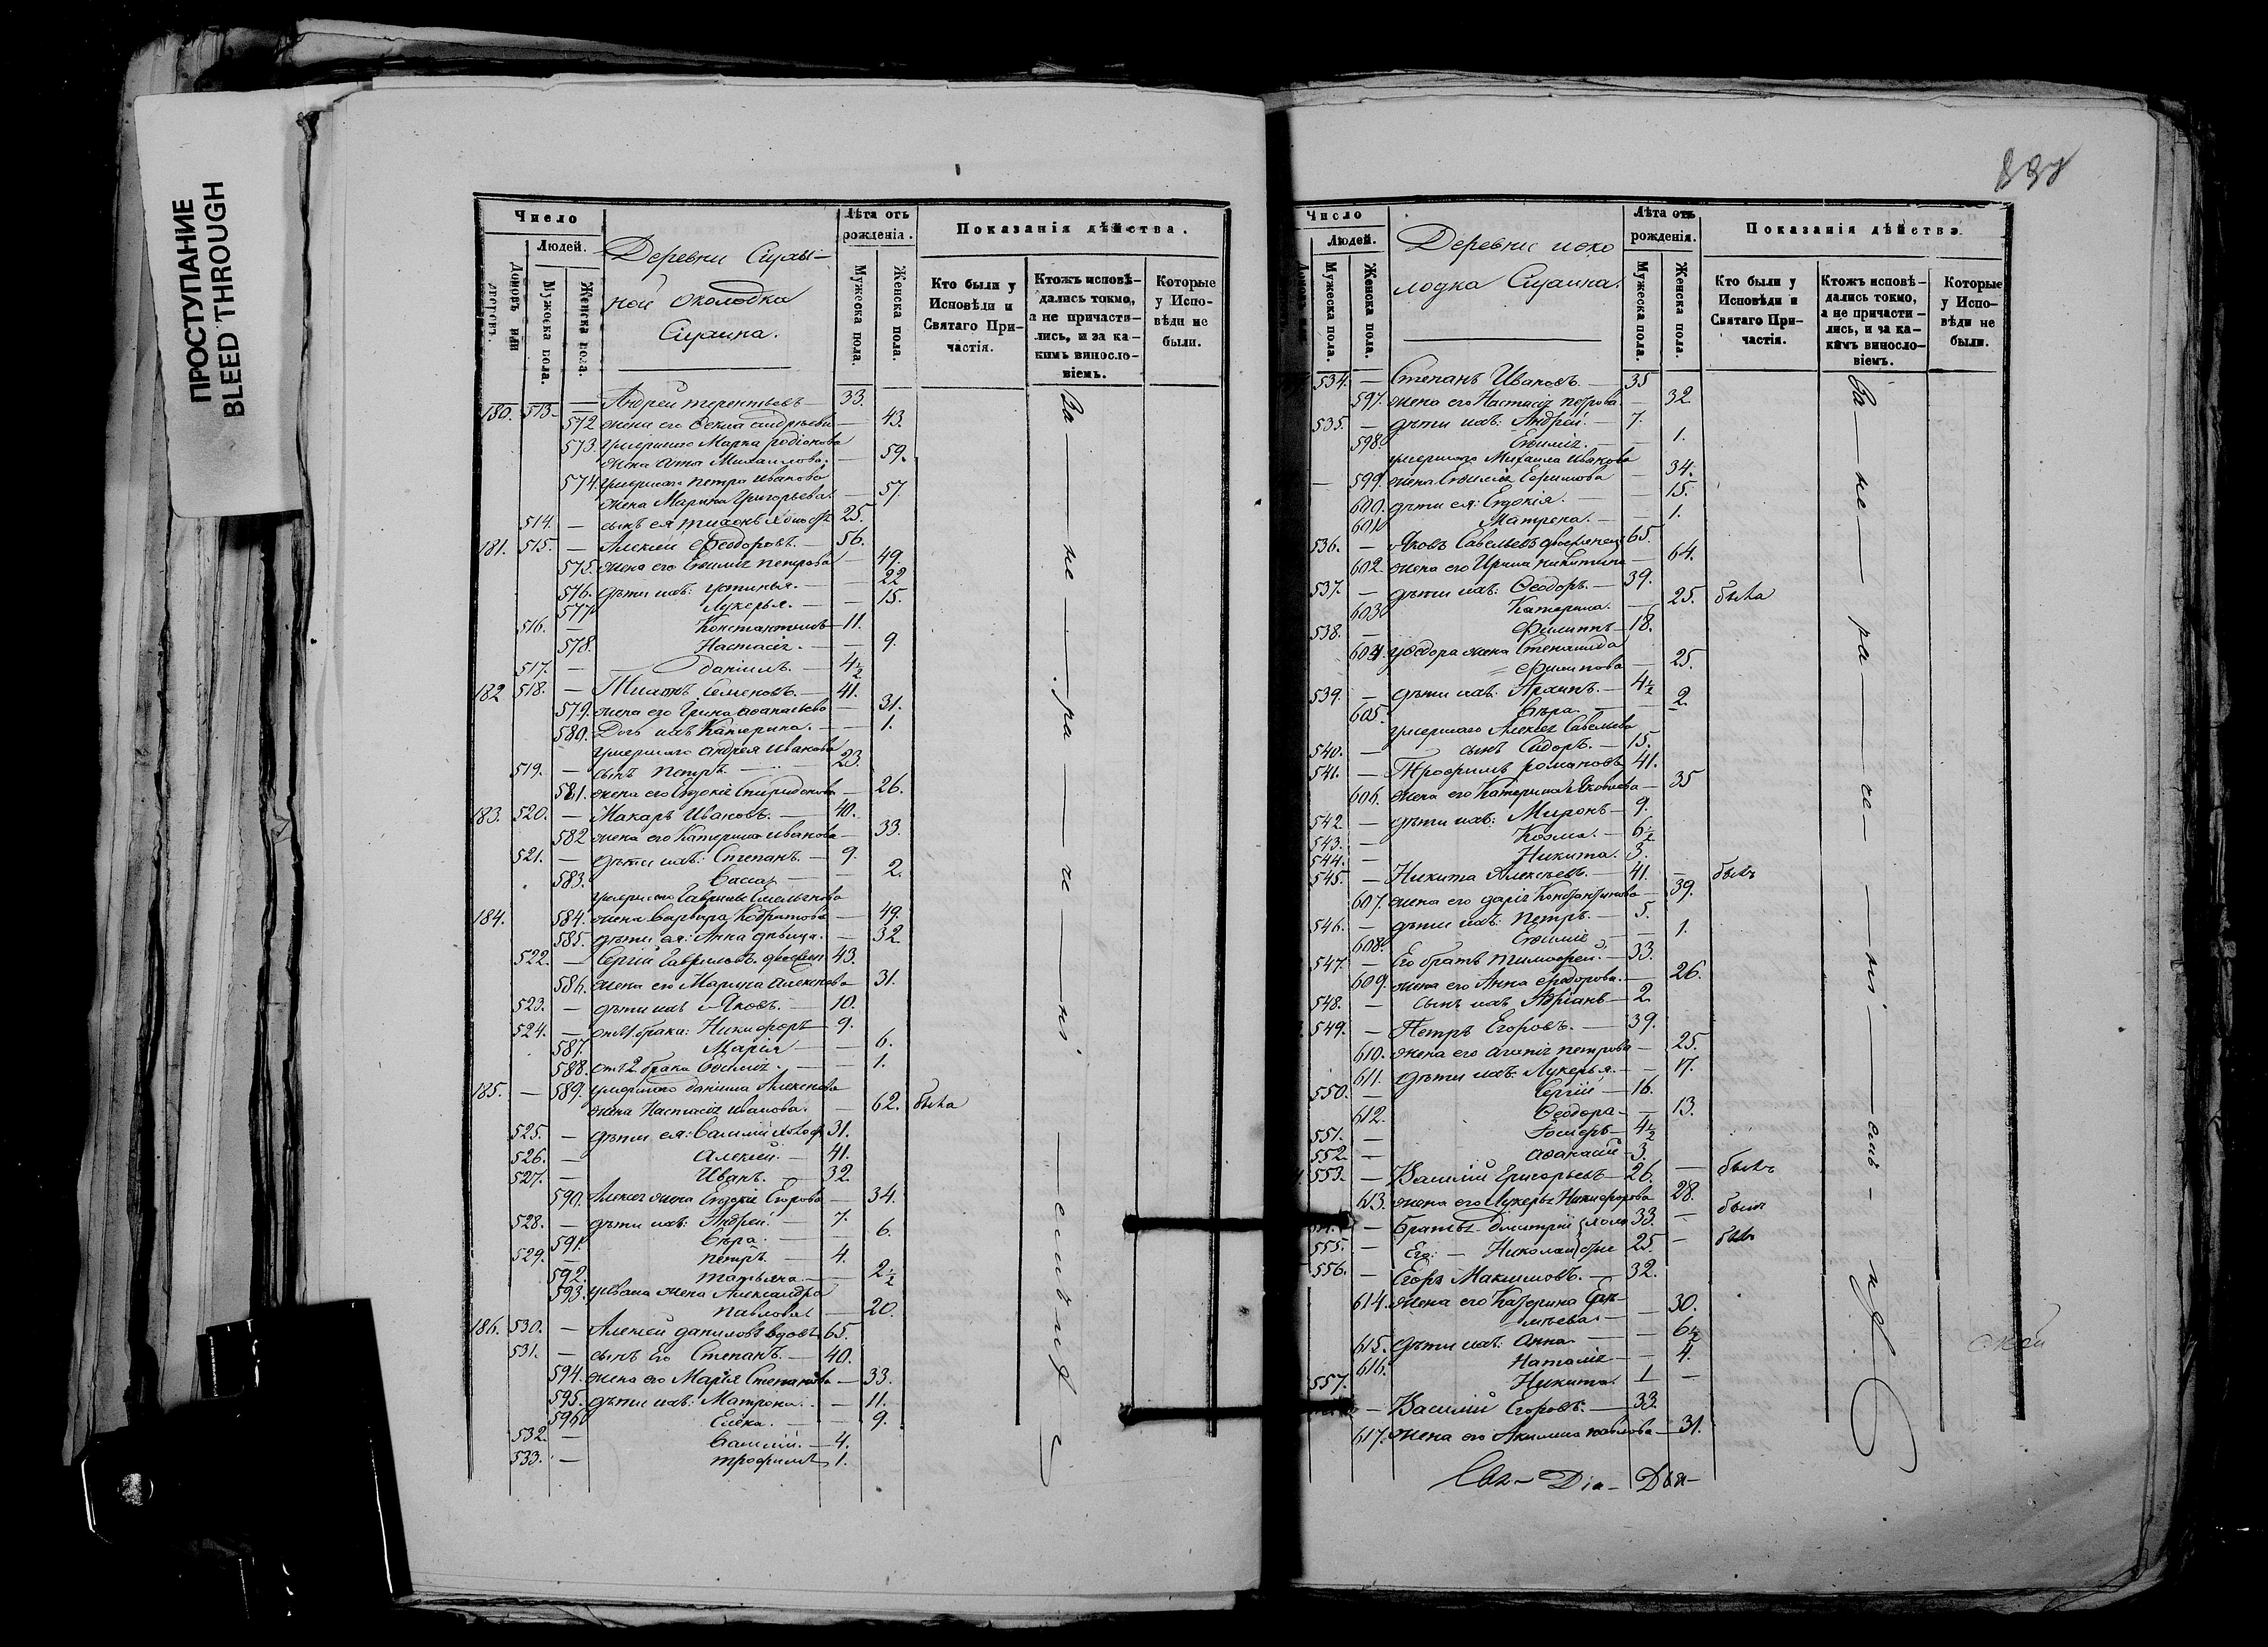 ПРОСТУПАНИЕ
BLEED THROUGH
Число
Людей.
Домовъ или
Мужеска пола.
Женска пола.
Деревни
ной околодка
Лѣта отъ рожденія.
Мужеска пола.
Женска пола.
Показанія дѣйства.
Кто были у Исповѣди и Святаго Причастія.
Ктожъ исповѣдались токмо, а не причастились, и за какимъ винословіемъ.
Которые у Исповѣди не были.
180. 513. — Андрей Терентьевъ — 33.
572 жена его Ѳекла Андреева — 43.
573. умершаго Марка Родіонова
жена Анна Михаилова. — 59.
574. умершаго Петра Иванова
жена Марина Григорьева. — 57.
514. — сынъ ея Тихонъ холостъ 25.
181. 515. — Алексей Ѳеодоровъ. — 56.
575. жена его Евѳимія Петрова — 49.
576. дѣти ихъ: Устинья. — 22
577. Лукерья. — 15.
516. — Константинъ — 11.
578. Настасія. — 9.
517. — Даніилъ. — 4½
182 518. — Тихонъ Семеновъ. — 41.
579. жена его Ирина Аѳанасьева — 31.
580. Дочь ихъ Катерина. — 1.
умершаго Андрея Иванова
519. — сынъ Петръ. — 23.
581. жена его Евдокія Спиридонова — 26.
183. 520. — Макаръ Ивановъ. — 40.
582 жена его Катерина Иванова — 33.
521. — дѣти ихъ: Степанъ. — 9.
583. Васса — 2.
умершаго Гавриила Емельянова
184. 584. жена Варвара Кодратова — 49.
585. дѣти ея: Анна дѣвица. — 32
522. — Сергій Гавриловъ 43.
586. жена его Марина Алексѣева 31.
523. — дѣти ихъ Яковъ. — 10.
524. — отъ 1 брака: Никифоръ 9.
587. Марія — 6.
588. отъ 2 брака Евѳимія. — 1.
185. — 589. умершаго Даніила Алексеева
жена Настасія Иванова. — 62. была
525. — дѣти ея: Василій 31.
526. — Алексей. — 41.
527. — Иванъ. — 32
590. Алексея жена Евдокія Егорова — 34.
528. — дѣти ихъ: Андрей. — 7.
591. Вѣра. — 6.
529. — Петръ. — 4.
592. Татьяна. — 2½
593. Ивана жена Александра
Павлова — 20.
186. 530. — Алексей Даниловъ вдовъ 65.
531. — сынъ Его Степанъ. — 40.
594. жена его Марія Степанова — 33.
595. дѣти ихъ: Матрона. — 11.
596. Елена. — 9.
532. — Василій. — 4.
533. — Трофимъ 1.
За — не — ра — че — ні — емъ
Число
Людей.
Мужеска пола.
Женска пола.
Деревни
лодка
Лѣта отъ рожденія.
Мужеска пола.
Женска пола.
Показанія дѣйства.
Кто были у Исповѣди и Святаго Причастія.
Ктожъ исповѣдались токмо, а не причастились, и за какимъ винословіемъ.
Которые у Исповѣди не были.
534. — Степанъ Ивановъ. — 35
597. жена его Настасія Петрова. — 32
535. — дѣти ихъ: Андрей. — 7.
598. Евѳимія. — 1.
умершаго Михаила Иванова
— 599. жена Евѳимія Ефимова — 34.
600. дѣти ея: Евдокія. — 15.
601. Матрена. — 1.
536. — Яковъ Савельевъ 65.
602. жена его Ирина Никитина — 64.
537. — дѣти ихъ: Ѳеодоръ. — 39.
603. Катерина. — 25. была
538. — Филиппъ — 18.
604. у Ѳедора жена Степанида
Филипова — 25.
539. — дѣти ихъ: Архипъ. — 4½
605. Вѣра. — 2.
умершаго Алексея Савельева
540. — сынъ Сидоръ. — 15.
541. — Трофимъ Романовъ 41.
606. жена его Катерина Яковлева — 35
542 — дѣти ихъ: Миронъ — 9.
543. — Козма. — 6½
544. — Никита. 3.
545. — Никита Алексѣевъ. — 41. — былъ
607. жена его Дарія Константинова — 39.
546. — дѣти ихъ: Петръ. — 5.
608. Евѳимія — 1.
547. — Его братъ Тимоѳей. — 33.
609. жена его Анна Ѳедорова. — 26.
548. — сынъ ихъ Адріанъ — 2.
549. — Петръ Егоровъ. — 39.
610. жена его Агапія Петрова — 25.
611. дѣти ихъ: Лукерья. — 17.
550. — Сергій — 16.
612. Ѳеодора — 13.
551. — 4½
552. — Аѳанасій — 3.
553. — Василій Григорьевъ — 26. — былъ
613. жена его Лукерья Никифорова 28.
— братья Дмитрій 33. — былъ
555. — Его: — Николай 25. — былъ
556. — Егоръ Максимовъ. — 32.
614. жена его Катерина — 30.
615. дѣти ихъ: Анна. — 6½
616. Наталія — 4.
557. Никита. 1 —
— Василій Егоровъ. — 33.
617. жена его Акилина Павлова — 31.
За — не — ра — че — ні — емъ